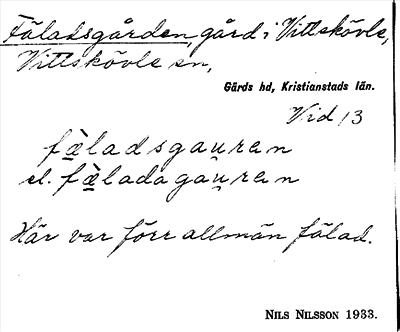 Fäladsgården, gård i Vittskövle,
Vittskövle sn,
Gärds hd, Kristianstads län.
Vid 13
fæ̀ladsgau̯ræn
el. fæ̀ladagau̯ræn
Här var förr allmän fälad.
NILS NILSSON 1933.